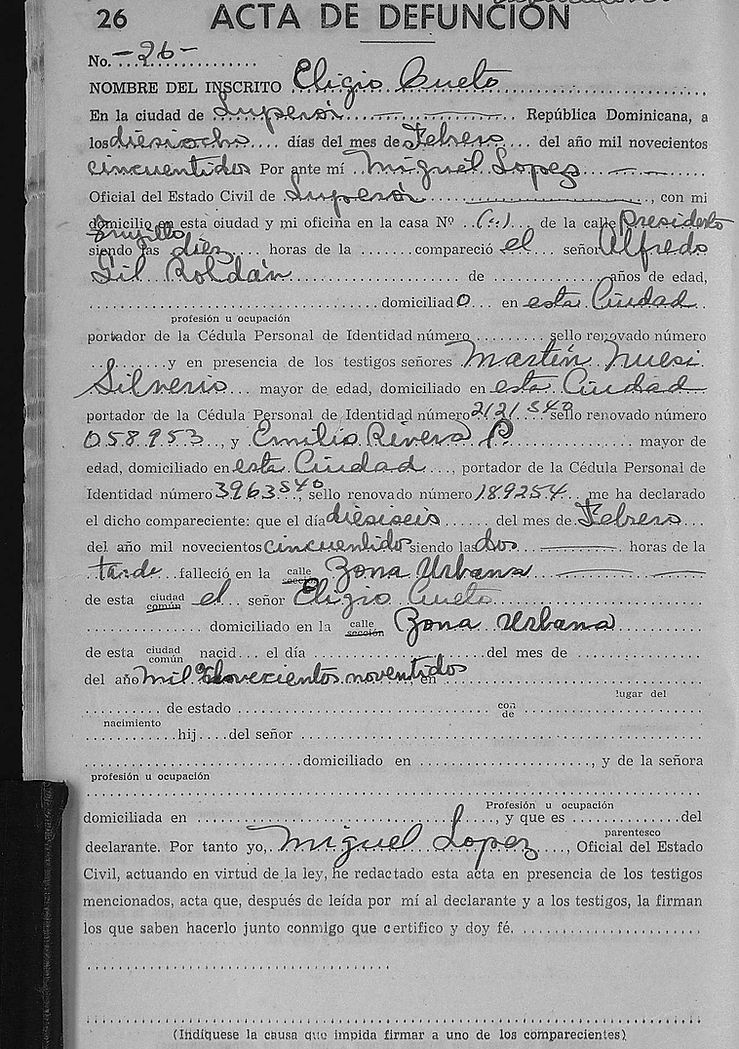 26 ACTA DE DEFUNCIÓN
No. -26-
NOMBRE DEL INSCRITO Eligio Cueto
En la ciudad de Imperón República Dominicana, a
los diesiocho días del mes de Febrero del año mil novecientos
cincuentidos Por ante mí Miguel Lopez
Oficial del Estado Civil de Imperón, con mi
domicilio en esta ciudad y mi oficina en la casa Nº (--) de la calle Presidente
Trujillo
siendo las diez horas de la compareció el señor Alfredo
Gil Roldán de años de edad,
domiciliado en esta Ciudad
profesión u ocupación
portador de la Cédula Personal de Identidad número sello renovado número
y en presencia de los testigos señores Martín Nuesi
Silverio mayor de edad, domiciliado en esta Ciudad
portador de la Cédula Personal de Identidad número 2121 S40 sello renovado número
058953, y Emilio Rivera P. mayor de
edad, domiciliado en esta Ciudad, portador de la Cédula Personal de
Identidad número 3963 S40, sello renovado número 189254 me ha declarado
el dicho compareciente: que el día diesiseis del mes de Febrero
del año mil novecientos cincuentidos siendo las dos horas de la
tarde falleció en la calle sección Zona Urbana
de esta ciudad común el señor Eligio Cueto
domiciliado en la calle sección Zona Urbana
de esta ciudad común nacid el día del mes de
del año mil novecientos noventidos en
lugar del
de estado con de
nacimiento
hij del señor
domiciliado en , y de la señora
profesión u ocupación
Profesión u ocupación
domiciliada en , y que es del
parentesco
declarante. Por tanto yo, Miguel Lopez, Oficial del Estado
Civil, actuando en virtud de la ley, he redactado esta acta en presencia de los testigos
mencionados, acta que, después de leída por mí al declarante y a los testigos, la firman
los que saben hacerlo junto conmigo que certifico y doy fé.
(Indíquese la causa que impida firmar a uno de los comparecientes)